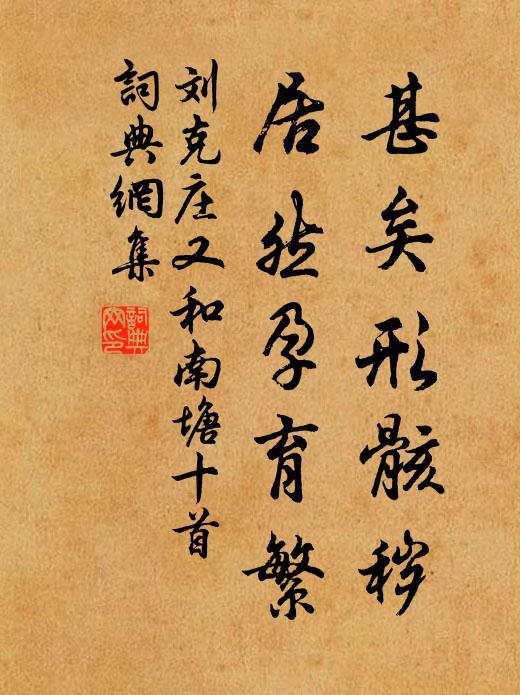 甚矣形骸秽
居然孕育繁
刘克庄又和南塘十首
詞典網集
詞典網印